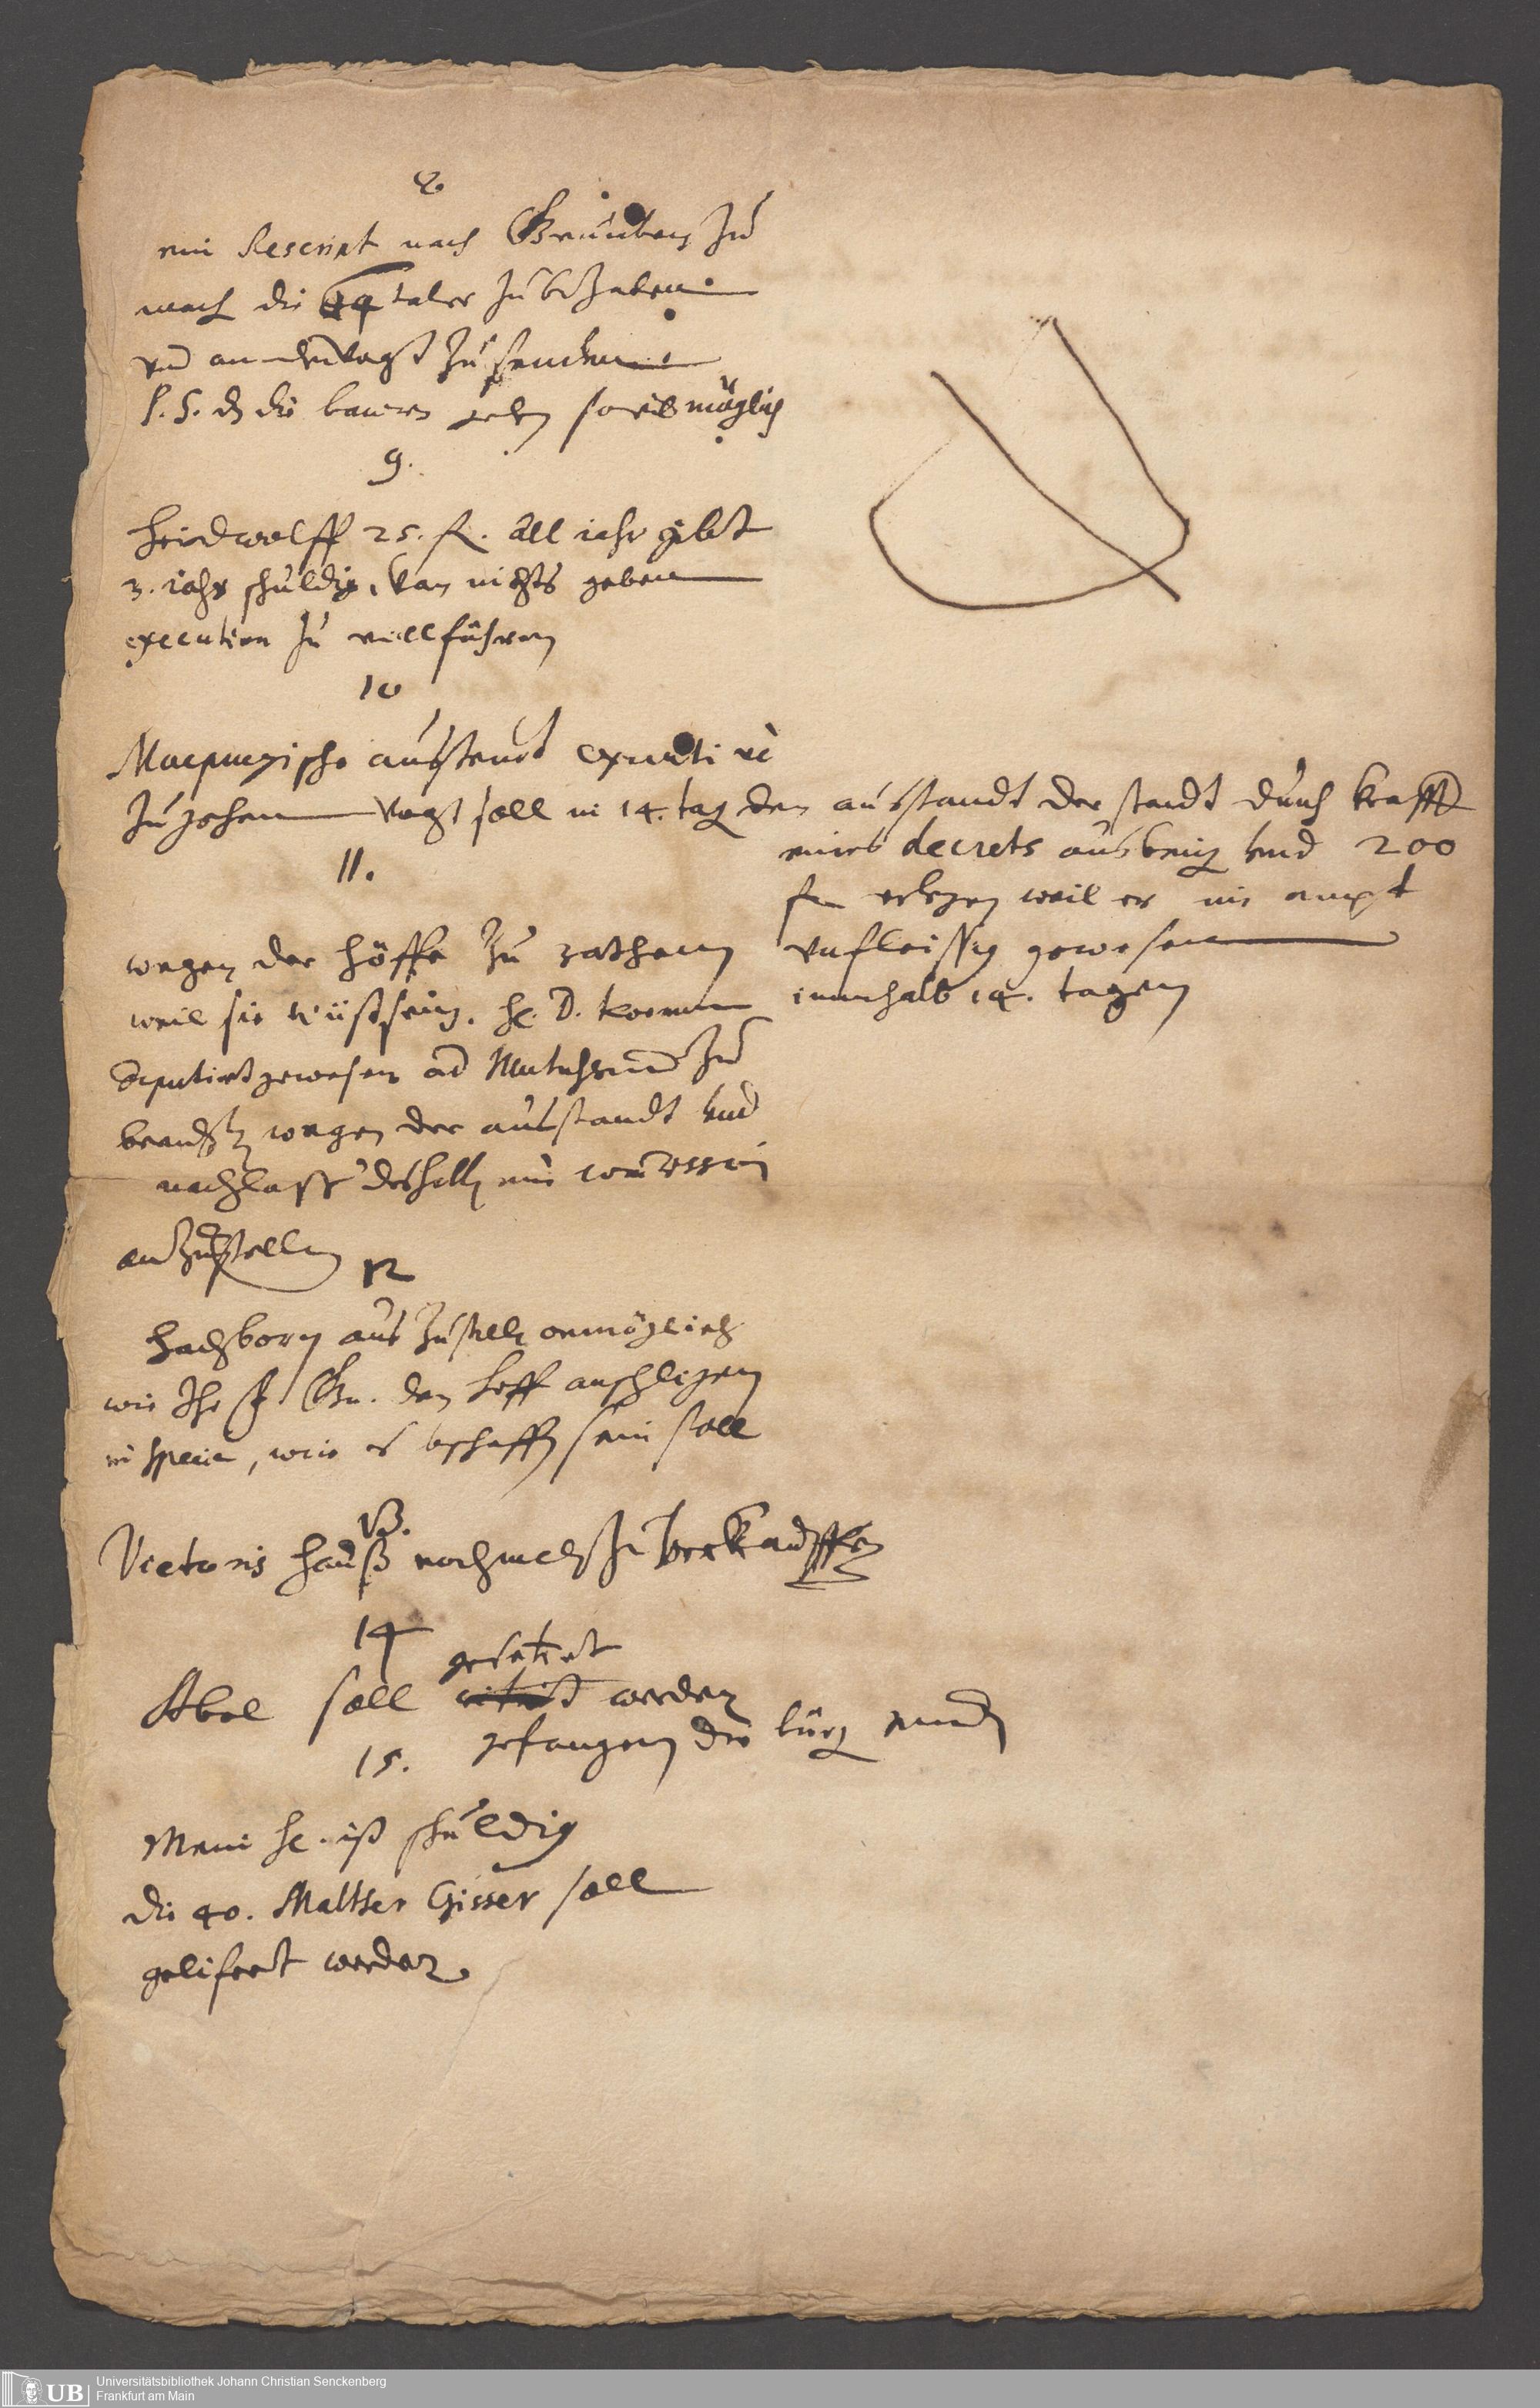 8.
ein Rescript nach Grünberg zu
mach die 14 taler zu bezahlen
vnd an den Vogt zu senden
P. S. dz die bauern geben sovil möglich
9.
Heidwolff 25. fl. all jahr gibt
3. jahr schuldig, kan nichts geben
execution zu vollführen
10
Marpurgische außstend executive
zu gehen Vogt soll in 14. tag den ausstandt der stadt durch krafft
eines decrets ausbring vnd 200
fl. erlegen weil er im ampt
vnfleissig gewesen
innerhalb 14. tagen
11.
wegen der höffe zu
weil sie wüst sein. H. D.
deputirt gewesen ad zu
wegen der ausstandt vnd
nachlass deshalb ein
anzustellen
12
Hachborn aus zustelln onmöglich
wie Ihr F Gn. den hoff anschligen
in specie, wie es beschaffen sein soll
13.
Victoris hauß nochmals zu verkauffen
14
Abel soll werden
gefangen die
15.
ist schuldig
die 40. Maltter soll
gelifert werden.
Universitätsbibliothek Johann Christian Senckenberg
Frankfurt am Main
UB